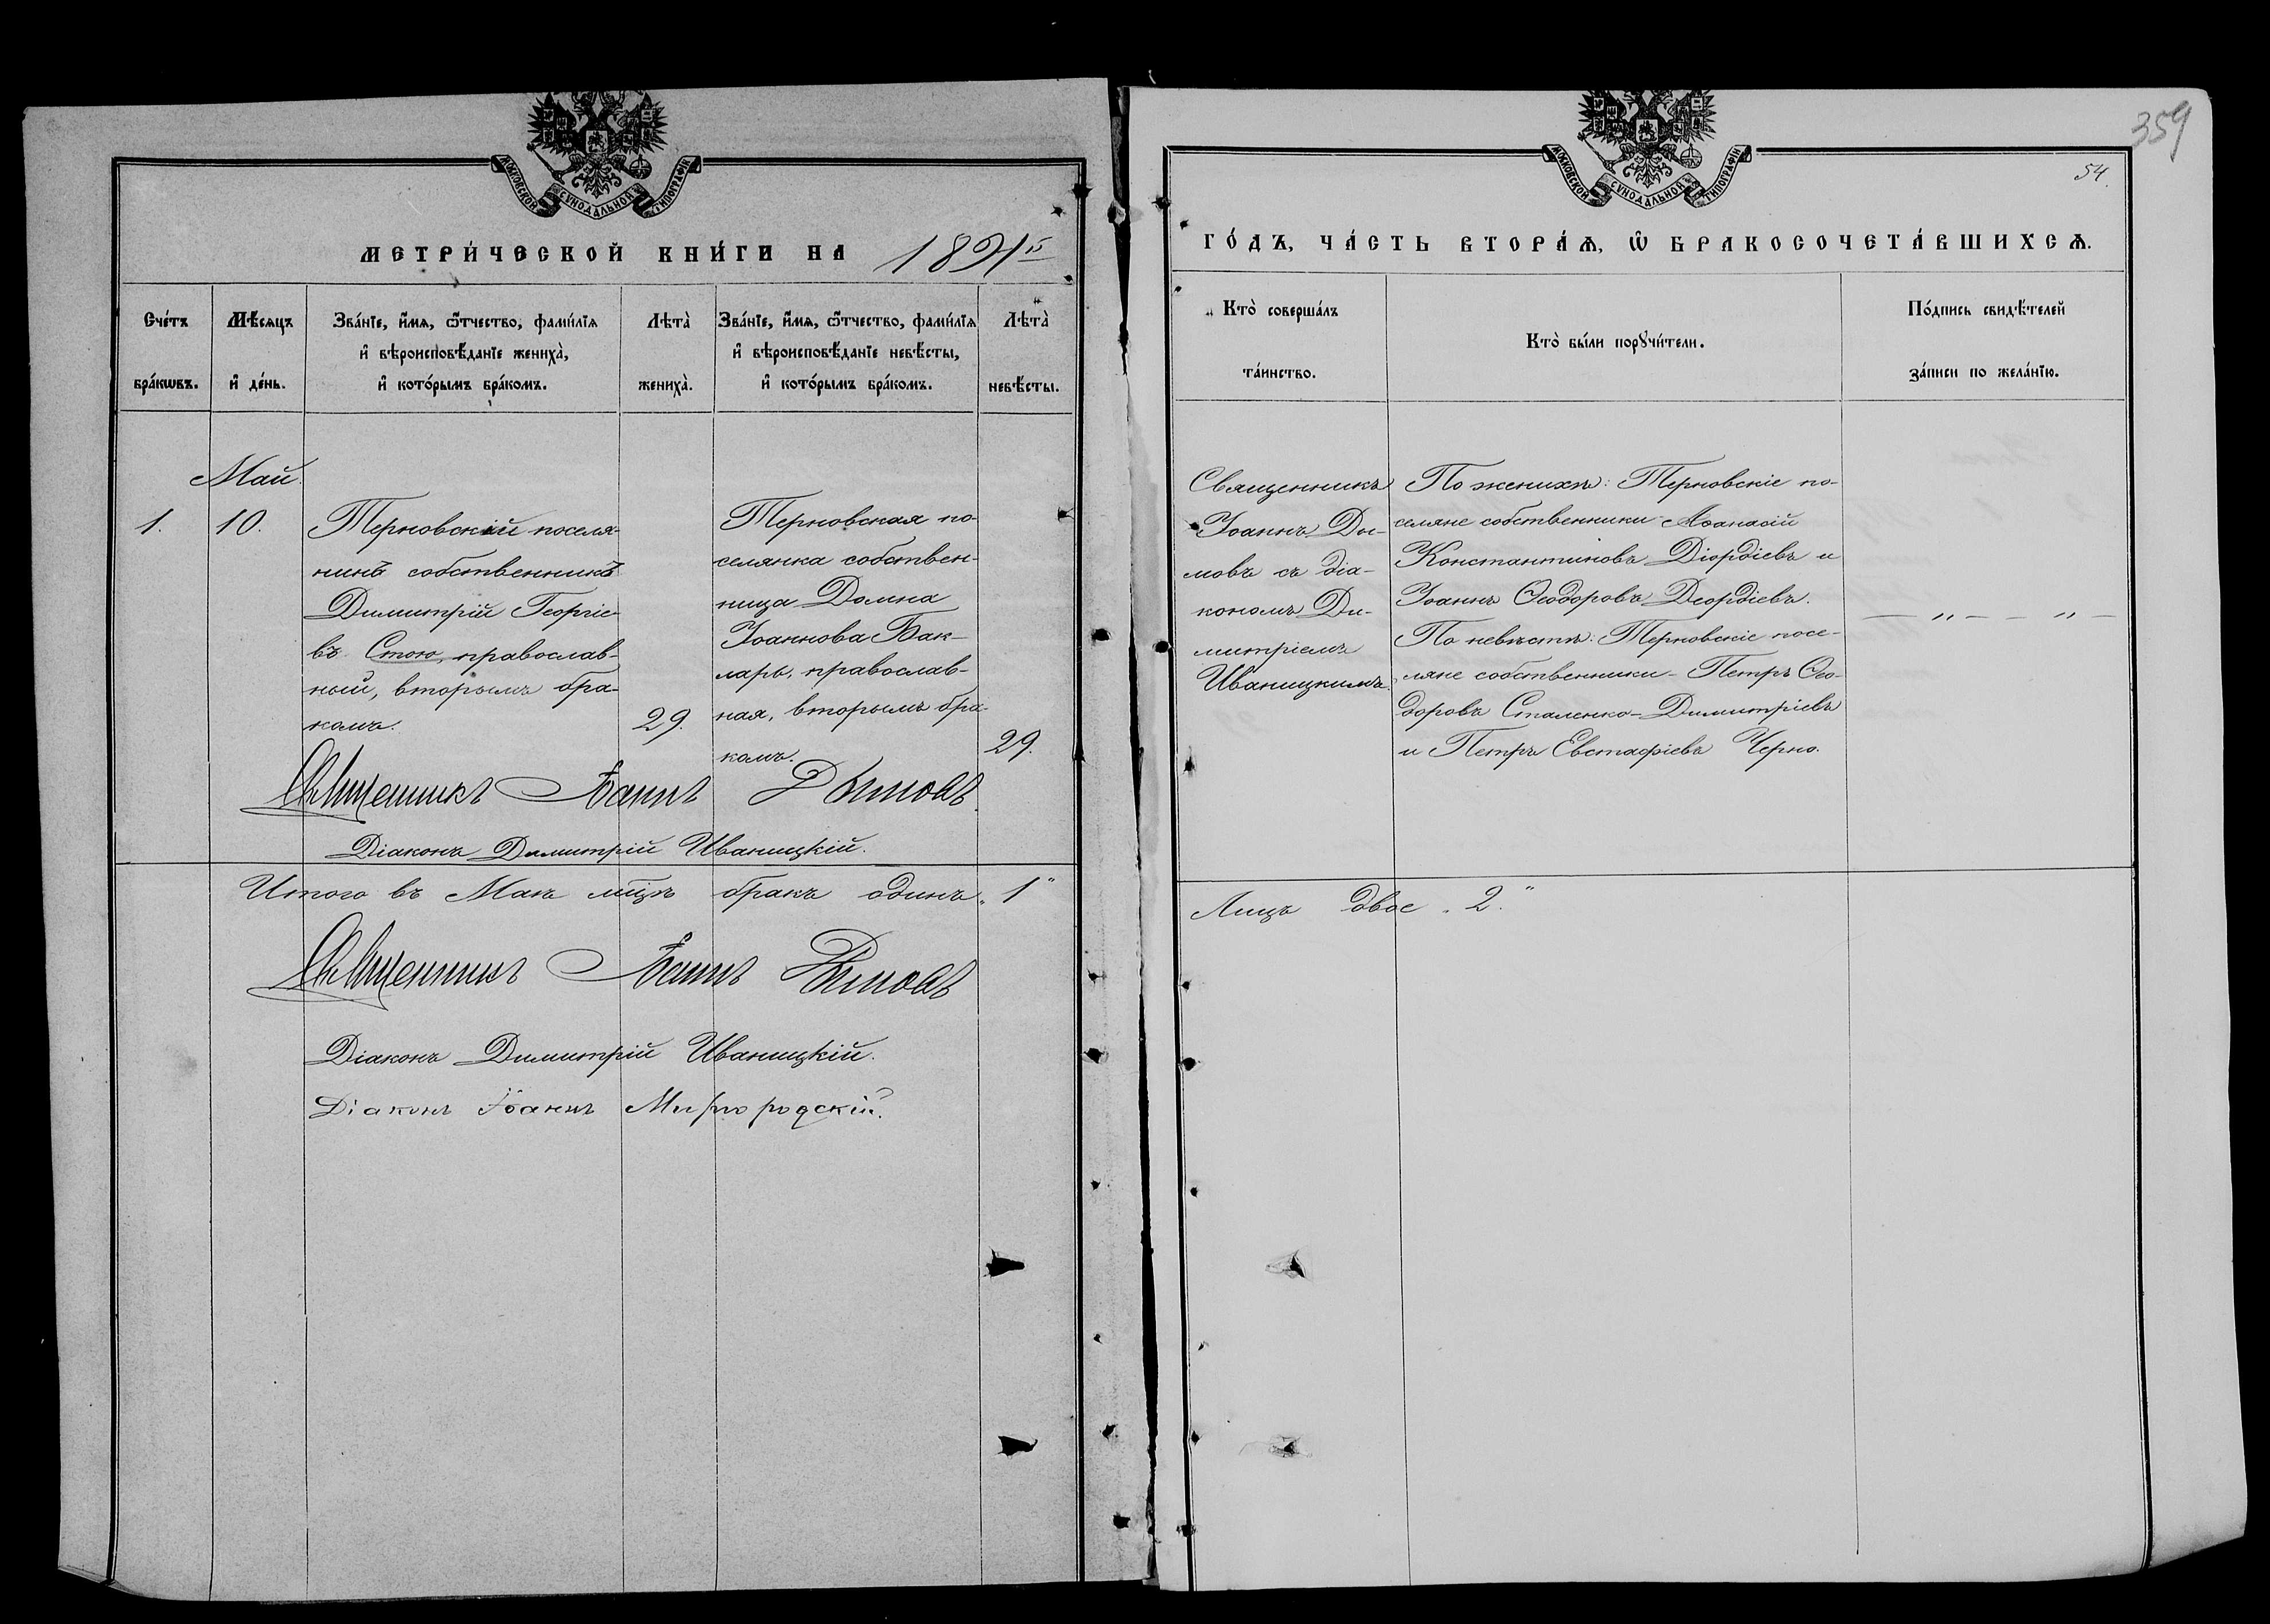 359
54.
МОСКОВСКОЙ СѴНОДАЛЬНОЙ ТИПОГРАФІИ
МОСКОВСКОЙ СѴНОДАЛЬНОЙ ТИПОГРАФІИ
МЕТРИ́ЧЕСКОЙ КНИ́ГИ НА 1891й
ГО́ДЪ, ЧА́СТЬ ВТОРА́Ѧ, Ѡ҆ БРАКОСОЧЕТА́ВШИХСѦ.
Сче́тъ бра́кωвъ.
Мѣ́сяцъ и҆ де́нь.
Зва́нїе, и҆́мѧ, ѻ҆́тчество, фами́лїѧ
и҆ вѣроисповѣ́данїе жениха̀,
и҆ кото́рымъ бра́комъ.
Лѣта̀ жениха̀.
Зва́нїе, и҆́мѧ, ѻ҆́тчество, фами́лїѧ
и҆ вѣроисповѣ́данїе невѣ́сты,
и҆ кото́рымъ бра́комъ.
Лѣта̀ невѣ́сты.
Кто̀ соверша́лъ
та́инство.
Кто̀ бы́ли порꙋчи́тели.
По́дпись свидѣ́телей
за́писи по жела́нїю.
Май.
1.
10.
Терновскій поселя-
нинъ собственникъ
Димитрій Георгіе-
въ Стою, православ-
ный, вторымъ бра-
комъ.
29.
Терновская по-
селянка собствен-
ница Домна
Іоаннова Бак-
ларь, православ-
ная, вторымъ бра-
комъ.
29.
Священникъ
Іоаннъ Ды-
мовъ съ діа-
кономъ Ди-
митріемъ
Иваницкимъ.
По женихѣ: Терновскіе по-
селяне собственники Аѳанасій
Константиновъ Діордіевъ и
Іоаннъ Ѳеодоровъ Деордіевъ.
По невѣстѣ: Терновскіе посе-
ляне собственники - Петръ Ѳео-
доровъ Сталенко-Димитріевъ
и Петръ Евстафіевъ Черно.
— „ — — „ —
Священникъ Іоаннъ Дымовъ
Діаконъ Димитрій Иваницкій.
Итого въ Маѣ мцѣ бракъ одинъ „1"
Лицъ двое „2."
Священникъ Іоаннъ Дымовъ
Діаконъ Димитрій Иваницкій.
Діаконъ Іоаннъ Миргородскій.